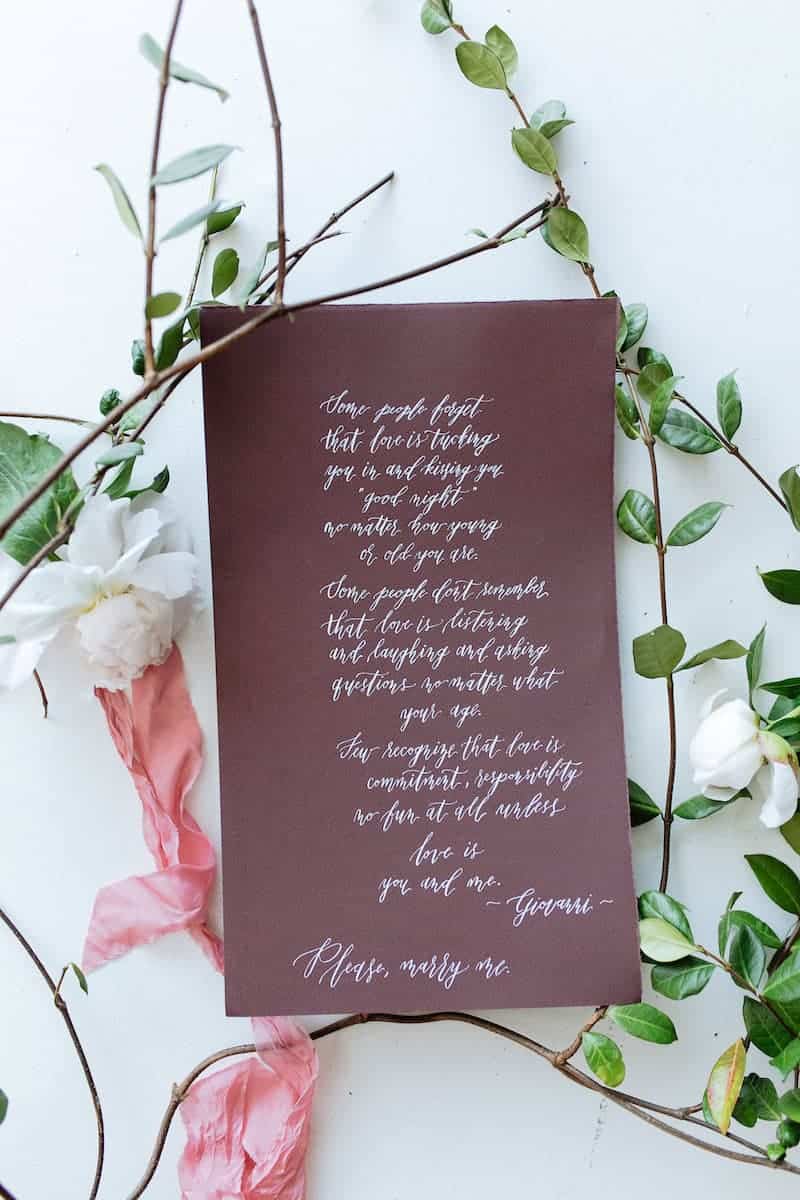 Some people forget
that love is tucking
you in and kissing you
"good night"
no matter how young
or old you are.
Some people don't remember
that love is listening
and laughing and asking
questions no matter what
your age.
Few recognize that love is
commitment, responsibility
no fun at all unless
love is
you and me.
~ Giovanni ~
Please, marry me.